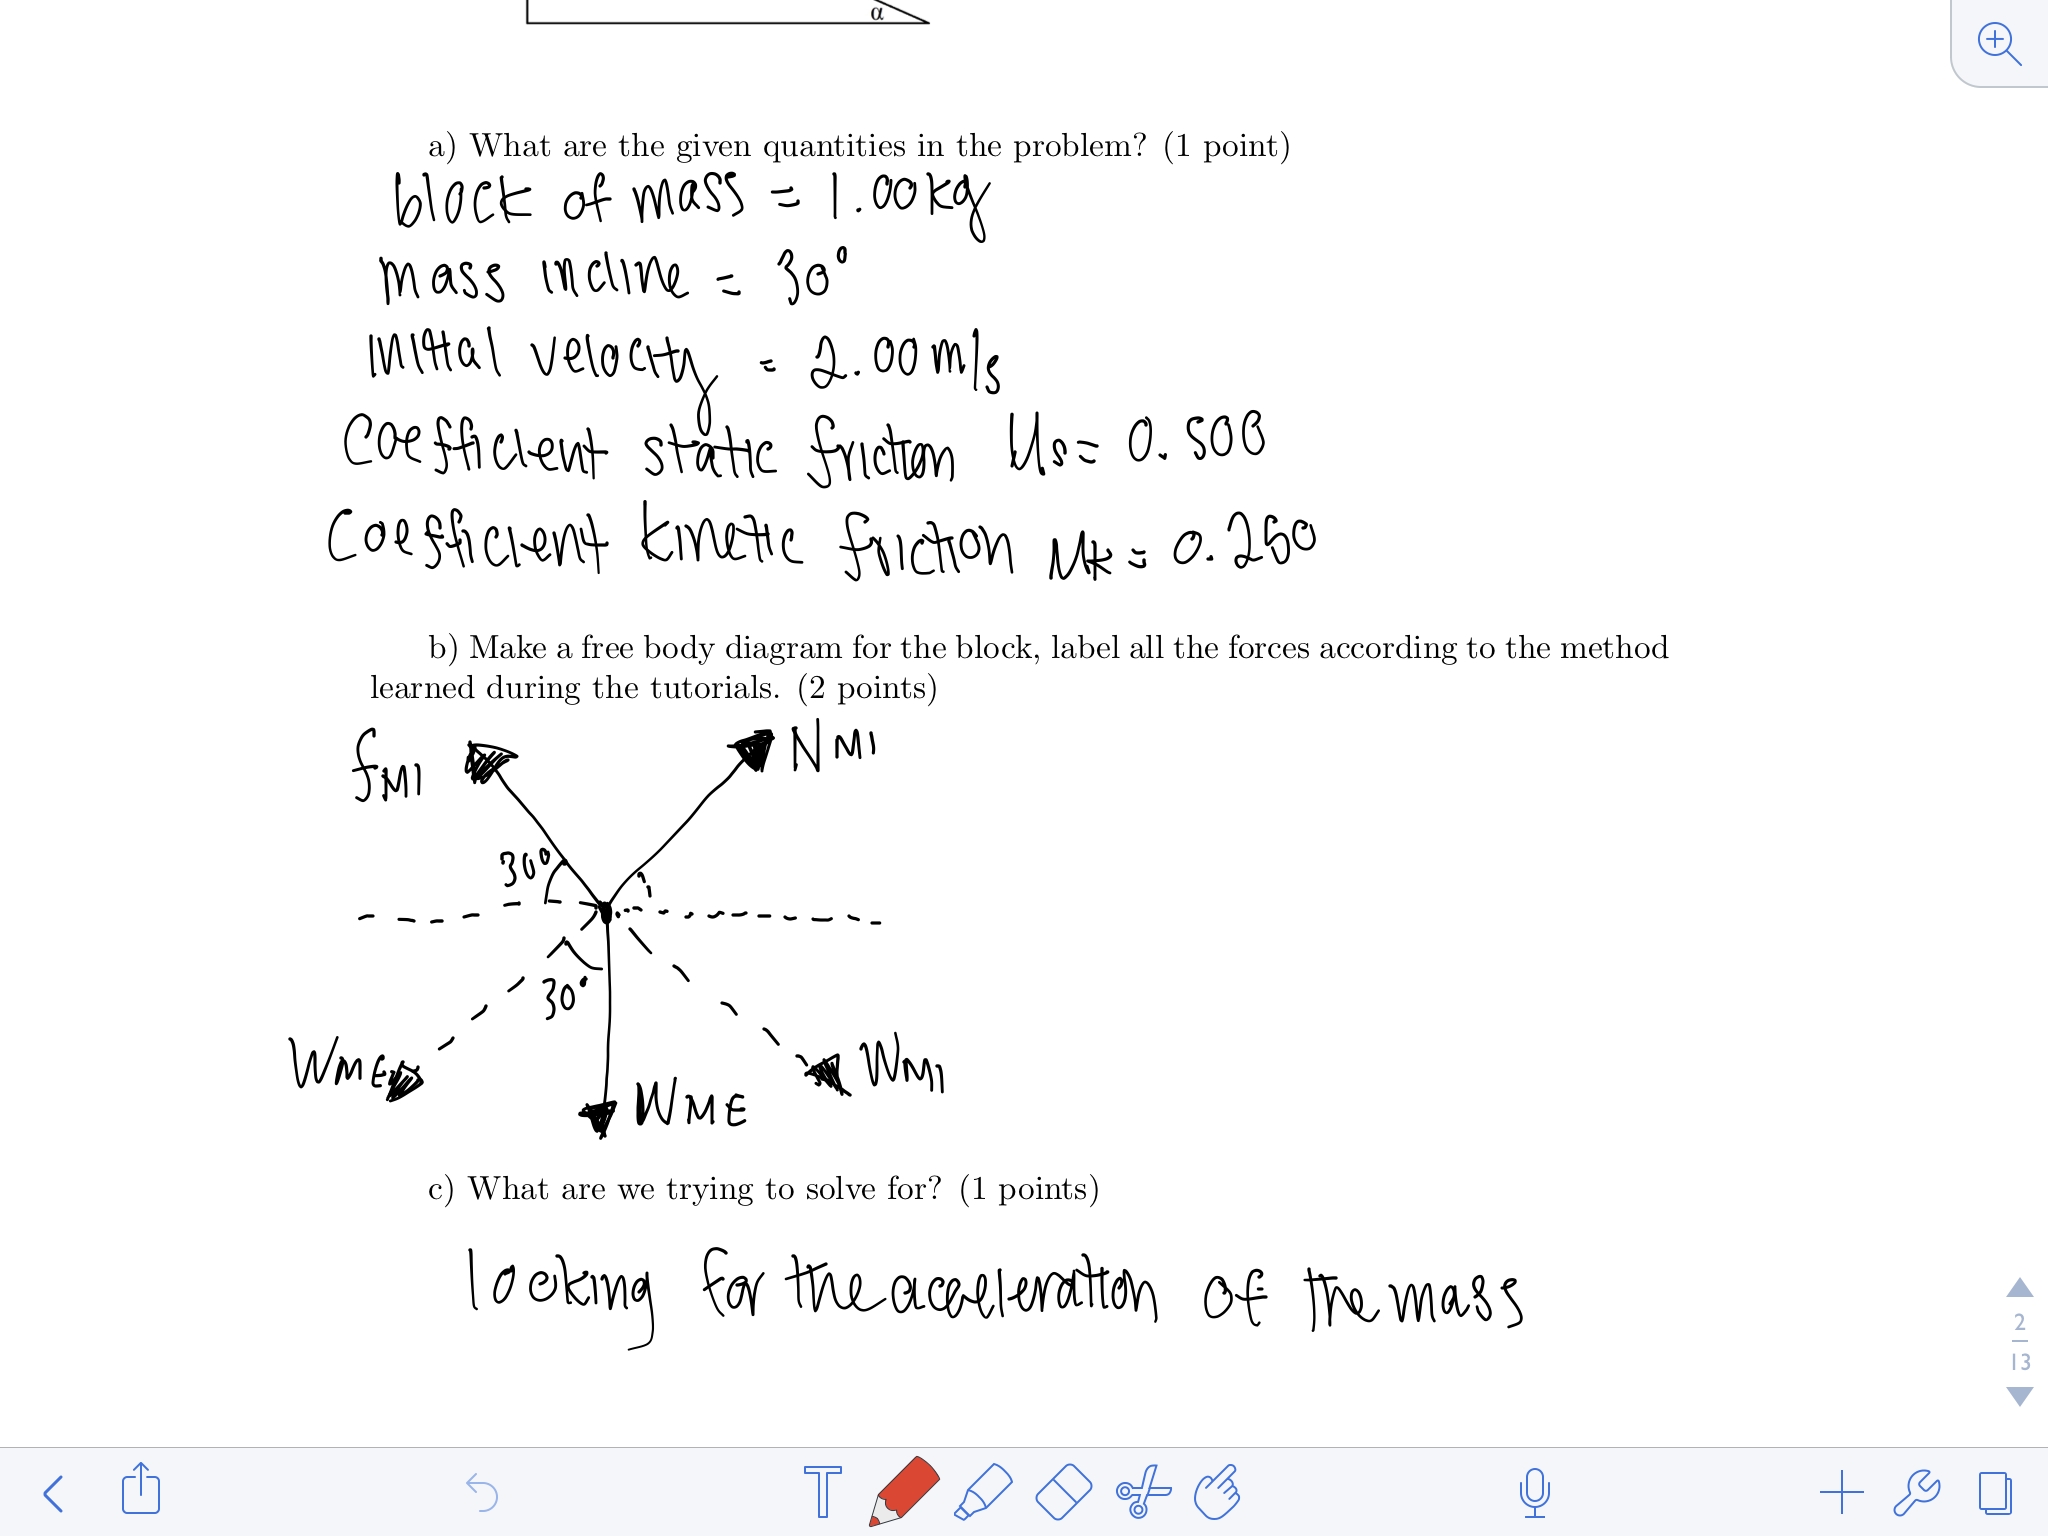 α
a) What are the given quantities in the problem? (1 point)
block of mass = 1.00kg
mass incline = 30°
initial velocity = 2.00m/s
Coefficient static friction Us= 0.500
Coefficient kinetic friction Mk= 0.250
b) Make a free body diagram for the block, label all the forces according to the method
learned during the tutorials. (2 points)
fMI
NMI
30°
30°
WME
WME
WMI
c) What are we trying to solve for? (1 points)
looking for the acceleration of the mass
2
13
T